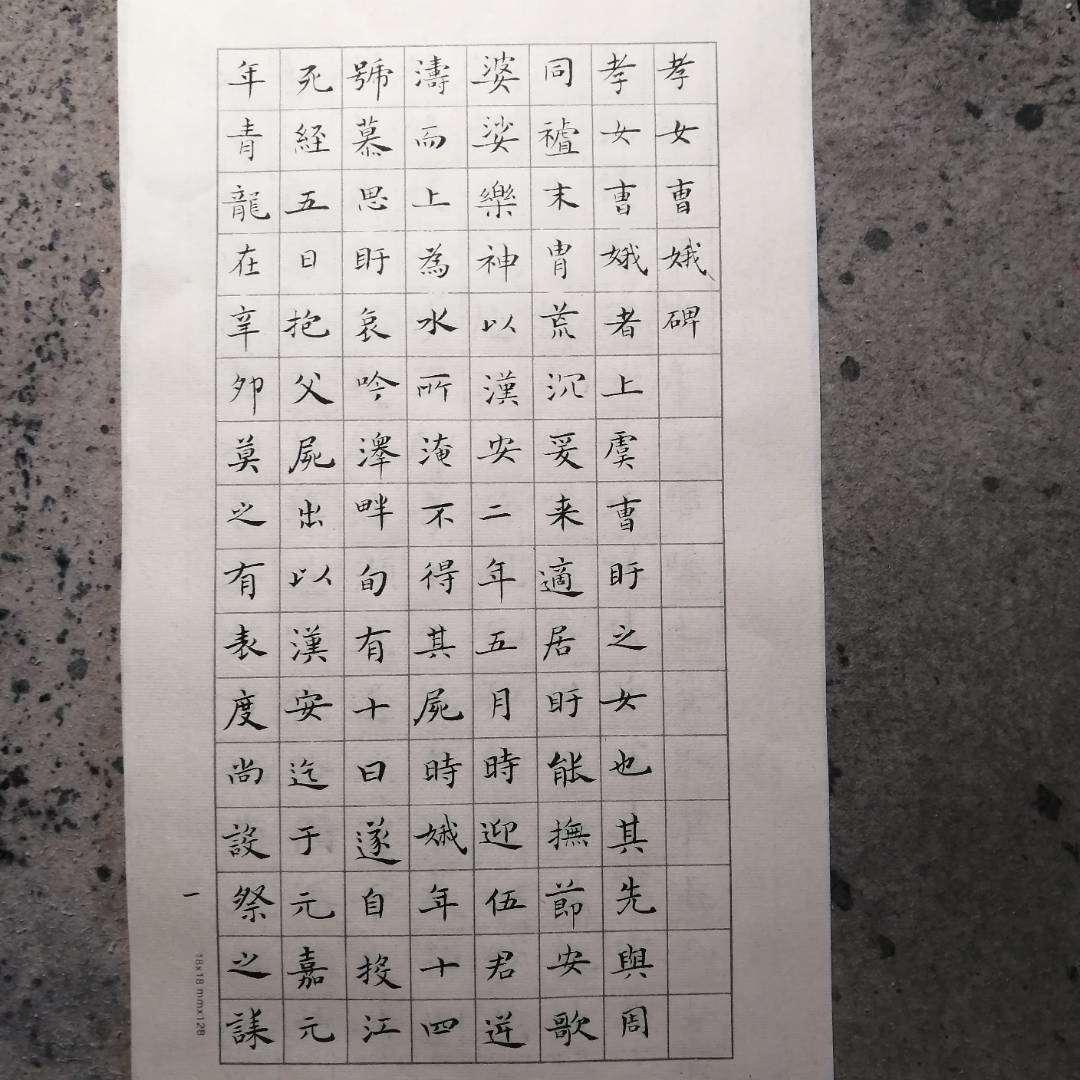 孝女曺娥碑
孝女曺娥者上虞曺盱之女也其先與周
同禇末胄荒沉爰来適居盱能撫節安歌
婆娑樂神以漢安二年五月時迎伍君逆
濤而上為水所淹不得其屍時娥年十四
號慕思盱哀吟澤畔旬有十日遂自投江
死經五日抱父屍出以漢安迄于元嘉元
年青龍在辛卯莫之有表度尚設祭之誄
一
18x18 mmx128